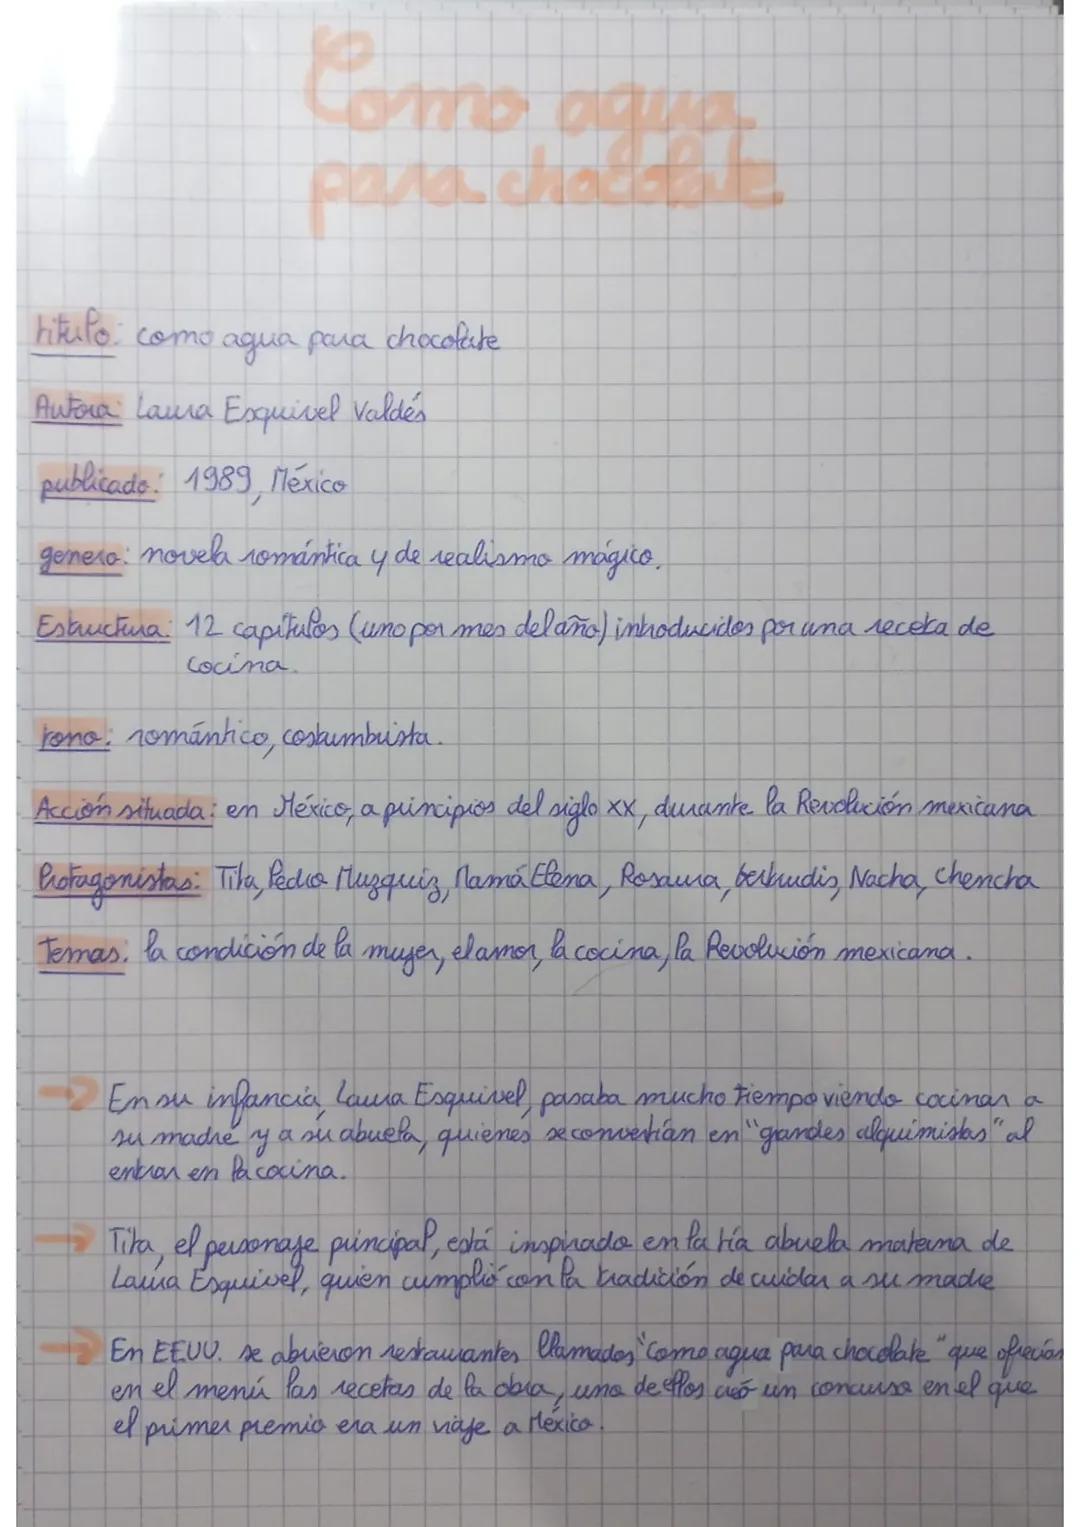 Como agua
para chocolate
título: como agua para chocolate
Autora: Laura Esquivel Valdés
publicado: 1989, México
genero: novela romántica y de realismo mágico.
Estructura: 12 capítulos (uno por mes del año) introducidos por una receta de
cocina.
tono: romántico, costumbrista.
Acción situada: en México, a principios del siglo XX, durante la Revolución mexicana
Protagonistas: Tita, Pedro Muzquiz, Mamá Elena, Rosaura, bertrudis, Nacha, Chencha
Temas: la condición de la mujer, el amor, la cocina, la Revolución mexicana.
→ En su infancia, Laura Esquivel, pasaba mucho tiempo viendo cocinar a
su madre y a su abuela, quienes se convertían en "grandes alquimistas" al
entrar en la cocina.
→ Tita, el personaje principal, está inspirado en la tía abuela materna de
Laura Esquivel, quien cumplió con la tradición de cuidar a su madre
→ En EEUU. se abrieron restaurantes llamados "como agua para chocolate" que ofrecían
en el menú las recetas de la obra, uno de ellos creó un concurso en el que
el primer premio era un viaje a México.